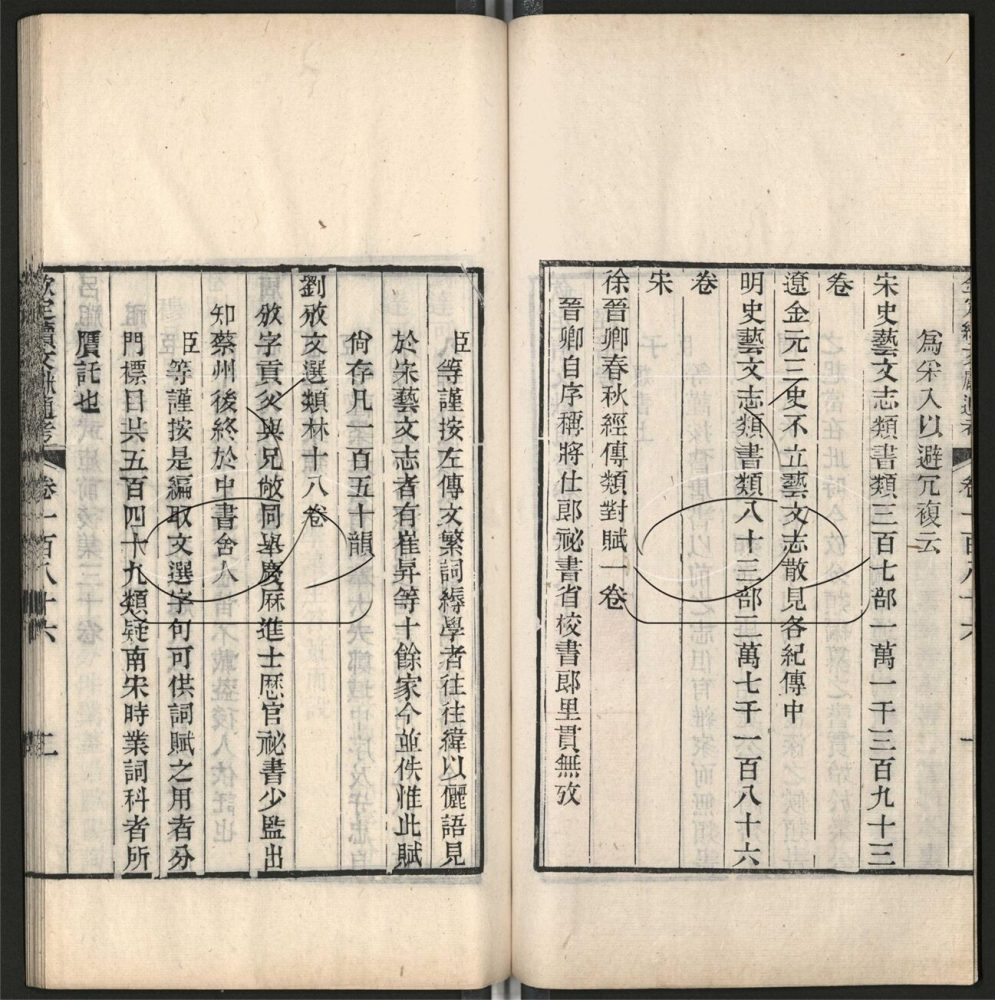 欽定續文獻通考 卷一百八十六 一
為宋人以避冗複云
宋史藝文志類書類三百七部一萬一千三百九十三
卷
遼金元三史不立藝文志散見各紀傳中
明史藝文志類書類八十三部二萬七千一百八十六
卷
宋
徐晉卿春秋經傳類對賦一卷
晉卿自序稱將仕郎祕書省校書郎里貫無攷
臣等謹按左傳文繁詞縟學者往往緯以儷語見
於宋藝文志者有崔昇等十餘家今並佚惟此賦
尙存凡一百五十韻
劉攽文選類林十八卷
攽字貢父與兄敞同舉慶厤進士厯官祕書少監出
知蔡州後終於中書舍人
臣等謹按是編取文選字句可供詞賦之用者分
門標目共五百四十九類疑南宋時業詞科者所
贋託也
欽定續文獻通考 卷一百八十六